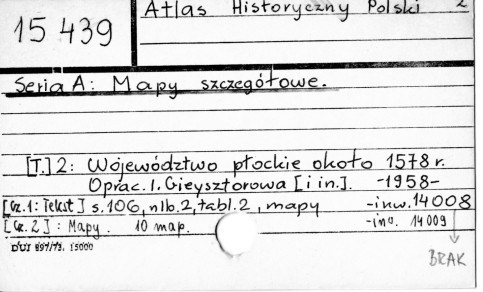 Atlas Historyczny Polski 2
15 439
Seria A: Mapy szczegółowe.
[T.] 2: Województwo płockie około 1578 r.
Oprac. I. Gieysztorowa [i in.]. -1958-
[Cz.1: Tekst] s. 106, nlb. 2, tabl. 2, mapy -inw. 14008
[Cz. 2]: Mapy. 10 map. -inw. 14009
DUJ 897/73. 15000
BRAK